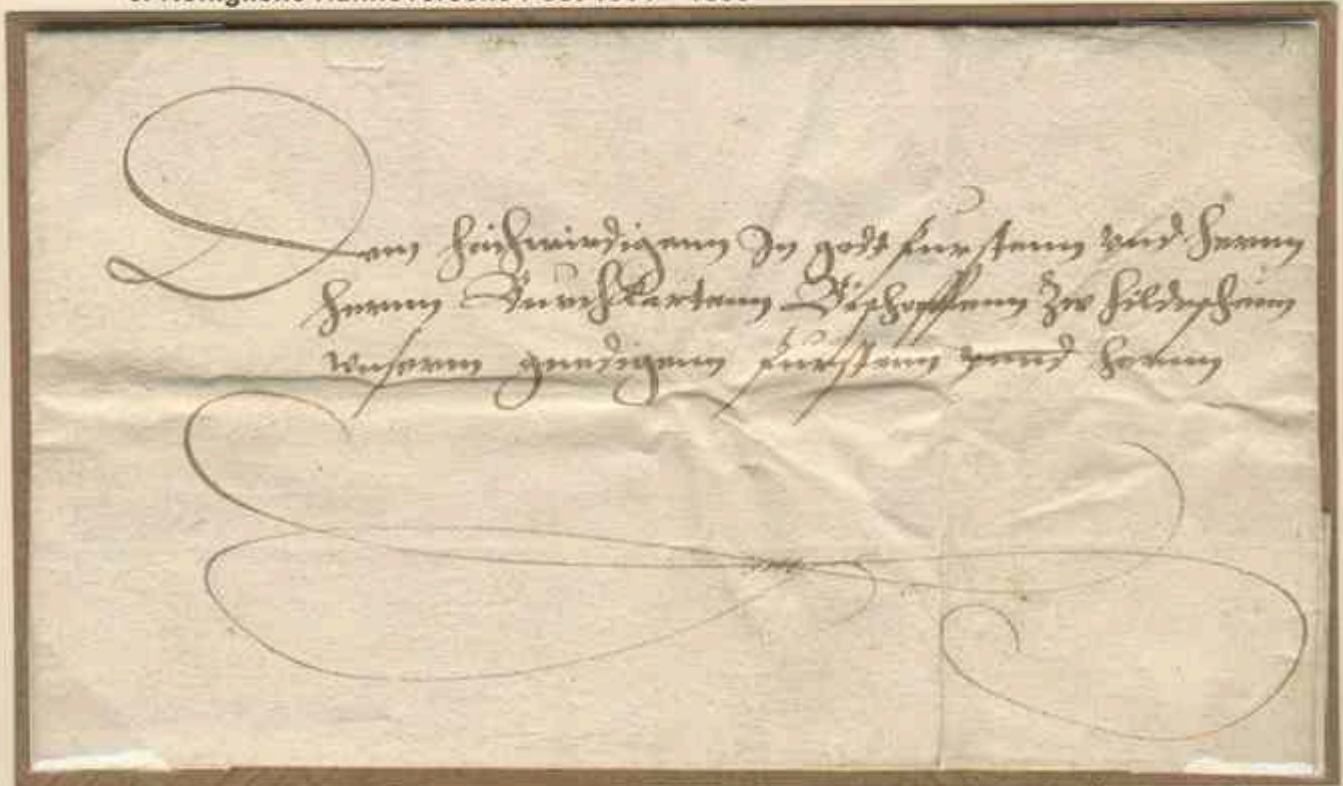 Dem hochwirdigenn In gott furstenn vnd hernn
hernn Burchkartenn Bischoffenn Zw hildesheim
vnserm gnedigenn furstenn vnnd hernn